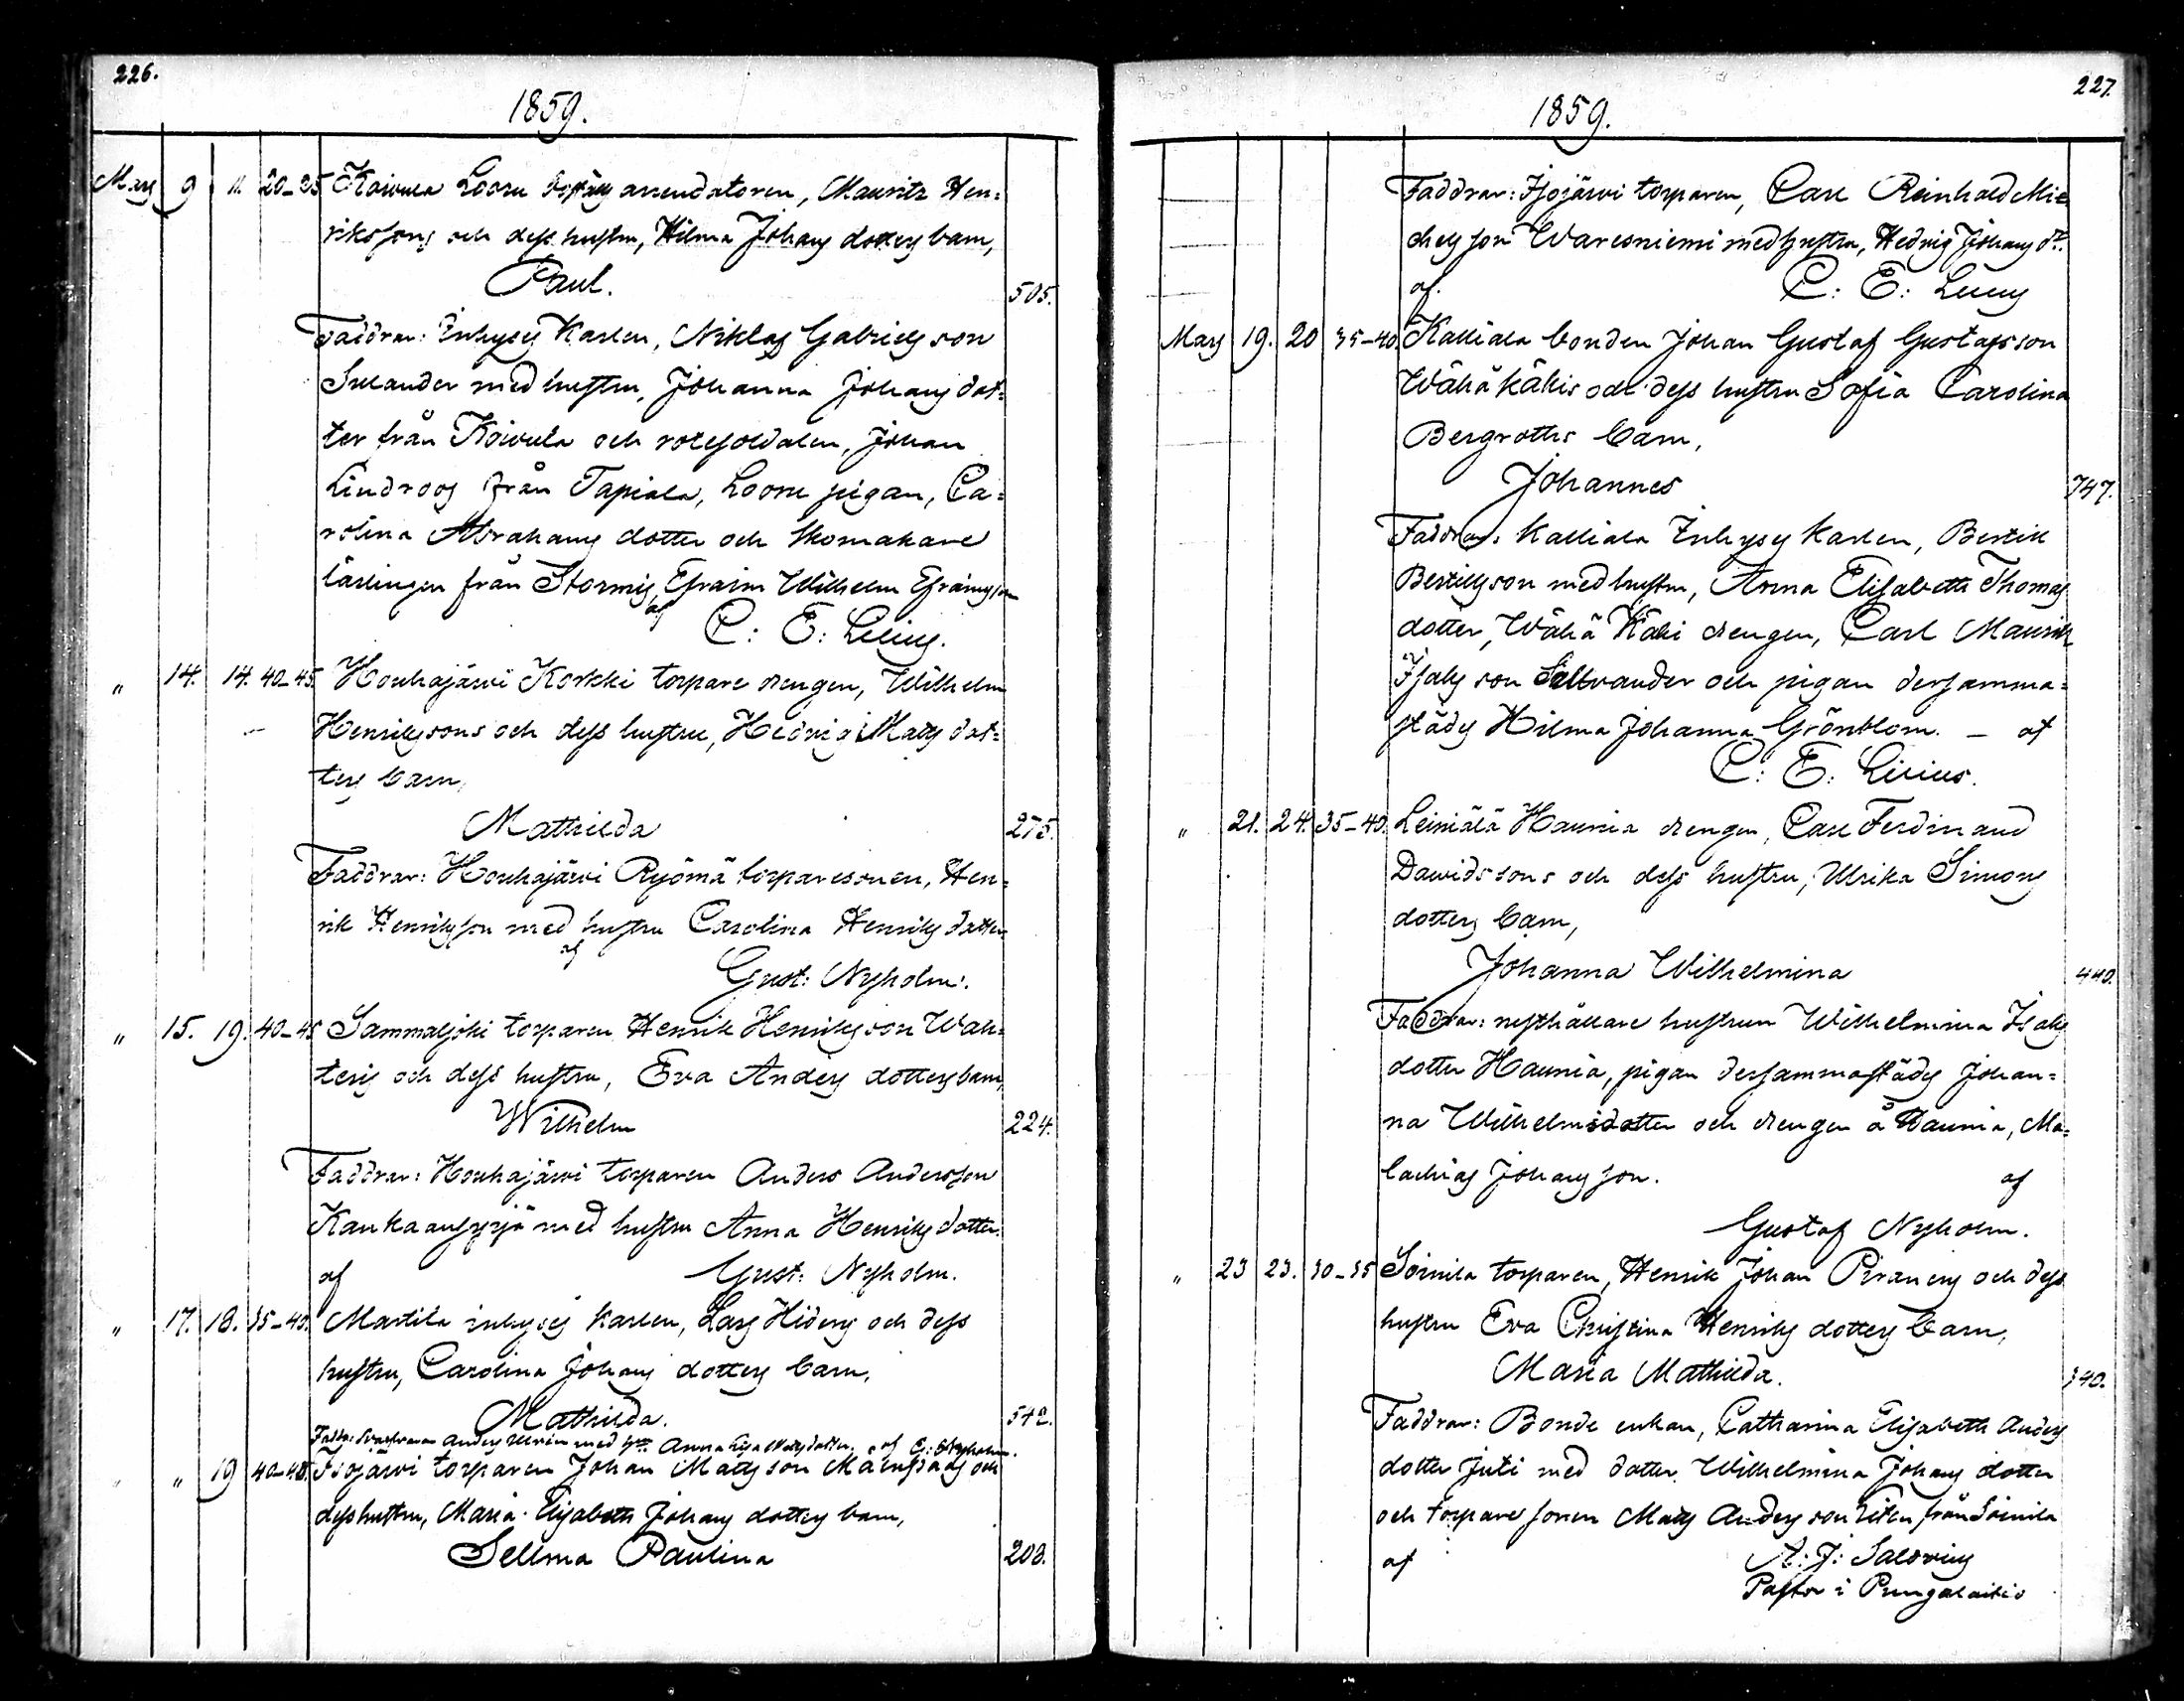 226.
1859.
Mars 9 11. 20-25 Koivula Loosu arrendatoren, Mauritz Hen=
rikssons och dess hustru, Hilma Johans dotters barn,
Paul.
505.
Faddrar: Inhyses Karlen, Niklas Gabrielsson
Sulander med hustru, Johanna Johans dot=
ter från Koivula och rotesoldaten, Johan
Lindroos från Tapiala, Loosu pigan, Ca=
rolina Abrahams dotter och Skomakare
lärlingen från Stormis, Efraim Wilhelm Efraimsson
af
C: E: Lilius.
" 14. 14. 40-45. Houhajärvi Korkki torpare drengen, Wilhelm
Henrikssons och dess hustru, Hedvig Mats dot=
ters barn,
Mathilda
275.
Faddrar: Houhajärvi Ryömä torparesonen, Hen=
rik Henriksson med hustru Carolina Henriks dotter
af
Gust: Nyholm.
" 15. 19. 40-45 Sammaljoki torparen Henrik Henriksson Wah=
teris och dess hustru, Eva Anders dotters barn,
Wilhelm
224.
Faddrar: Houhajärvi torparen Anders Andersson
med hustru Anna Henriks dotter.
af Gust: Nyholm.
" 17. 18. 35-40. Martila inhyses karlen, Lars Hidens och dess
hustru, Carolina Johans dotters barn,
Mathilda.
542.
Anders med Anna Lisa Mats dotter. af G: Nyholm.
" " 19 40-45. Isojärvi torparen Johan Matsson och
dess hustru, Maria Elisabeth Johans dotters barn,
Sellma Paulina
203.
227.
1859.
Faddrar: Isojärvi torparen, Carl Reinhold Mi=
chelsson Waresniemi med hustru, Hedvig Johans dr.
af. C: E: Lilius
Mars 19. 20 35-40. Kalliala bonden Johan Gustaf Gustafsson
Wähä käkis och dess hustru Sofia Carolina
Bergroths barn,
Johannes
747.
Faddrar: Kalliala Inhyses Karlen, Bertil
Bertilsson med hustru, Anna Elisabeth Thomas
dotter, Wähä Käki drengen, Carl Maurits
Isaksson och pigan dersamma=
städs Hilma Johanna Grönblom. – af
C: E: Lilius.
" 21. 24. 35-40. Leiniälä Haunia drengen, Carl Ferdinand
Davidssons och dess hustru, Ulrika Simons
dotters barn,
Johanna Wilhelmina
440.
Faddrar: rusthållare hustrun Wilhelmina Isaks
dotter Haunia, pigan dersammastäds Johan=
na Wilhelmsdotter och drengen å Haunia, Ma=
lachias Johansson. af
Gustaf Nyholm.
" 23 23. 30-35 Soinila torparen, Henrik Johan Piranens och dess
hustru Eva Christina Henriks dotters barn,
Maria Mathilda.
340.
Faddrar: Bonde enkan, Catharina Elisabeth Anders
dotter Juti med dotter Wilhelmina Johans dotter
och torpare sonen Mats Andersson från Soinila
af A: J: Salovius
Pastor i Pungalaitio